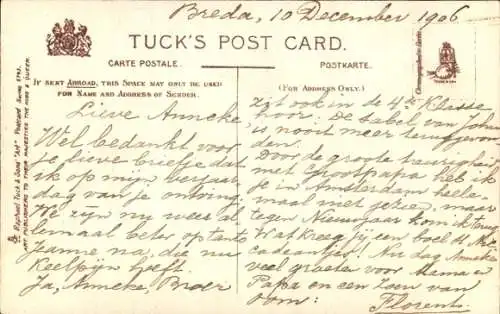 Breda, 10 December 1906
TUCK'S POST CARD.
CARTE POSTALE.
POSTKARTE.
IF SENT ABROAD, THIS SPACE MAY ONLY BE USED
FOR NAME AND ADDRESS OF SENDER.
(FOR ADDRESS ONLY.)
Lieve Anneke,
Wel bedankt voor
je lieve briefje dat
ik op mijn verjaar
dag van je ontving.
We zijn nu weer al
lemaal beter op tante
Jeanne na, die nu
Keelpijn heeft.
Ja, Anneke, Broer
zit ook in de 4de Klasse
hoor. De sabel van John
is nooit meer teruggevon
den.
Door de groote treurigheid
met Grootpapa heb ik
je in Amsterdam heele
maal niet gezien, maar
tegen Nieuwjaar kom ik terug
Wat kreeg jij een boel St. Nic.
cadeautjes! Nu dag Anneke
veel groeten voor Mama en
Papa en een zoen van
oom:
Florent.
RAPHAEL TUCK & SONS
ART PUBLISHERS TO THEIR MAJESTIES THE KING & QUEEN.